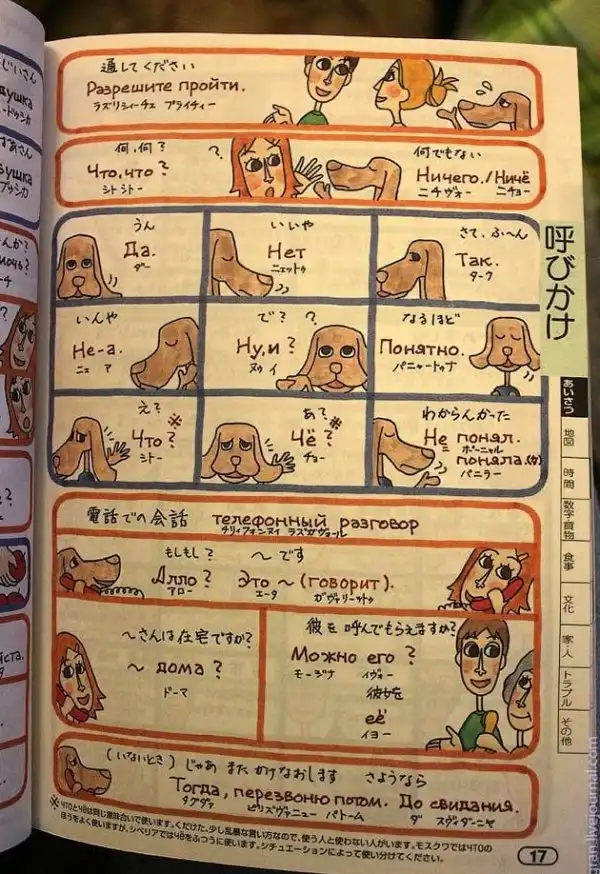 通してください
Разрешите пройти.
ラズリシィーチェ プライチィー
何,何?
?
何でもない
Что,что?
シト シトー
Ничего./Ничё
ニチヴォー ニチョー
うん
Да.
ダー
いいや
Нет
ニェットゥ
さて、ふ〜ん
Так.
ターク
いんや
Не-а.
ニェ ア
で? ?
Ну,и?
ヌゥ イ
なるほど
Понятно.
パニャートゥナ
え?
※
Что?
シトー
あ?
※
Чё?
チョー
わからんかった
Не понял.
ポーニャル
поняла.(女)
パニラー
電話での会話 телефонный разговор
チリィフォンヌイ ラズガヴォール
もしもし? 〜です
Алло? Это ~ (говорит).
アロー エータ ガヴァリーットゥ
〜さんは在宅ですか?
~ дома?
ドーマ
彼を呼んでもらえますか?
Можно его?
モージナ イヴォー
彼女を
её
イヨー
(いないとき)じゃあ またかけなおします さようなら
Тогда, перезвоню потом. До свидания.
タグダァ ピリズヴァニュー パトーム ダ スヴィダーニヤ
※ЧТОとЧЁは同じ意味合いで使います。くだけた、少し乱暴な言い方なので、使う人と使わない人がいます。モスクワではЧТОの
ほうをよく使いますが、シベリアではЧЁをふつうに使います。シチュエーションによって使い分けてください。
17
呼びかけ
あいさつ
地図
時間
数字・買物
食事
文化
家・人
トラブル
その他
душка
ドゥシカ
ばあさん
プッシカ
gran.livejournal.com